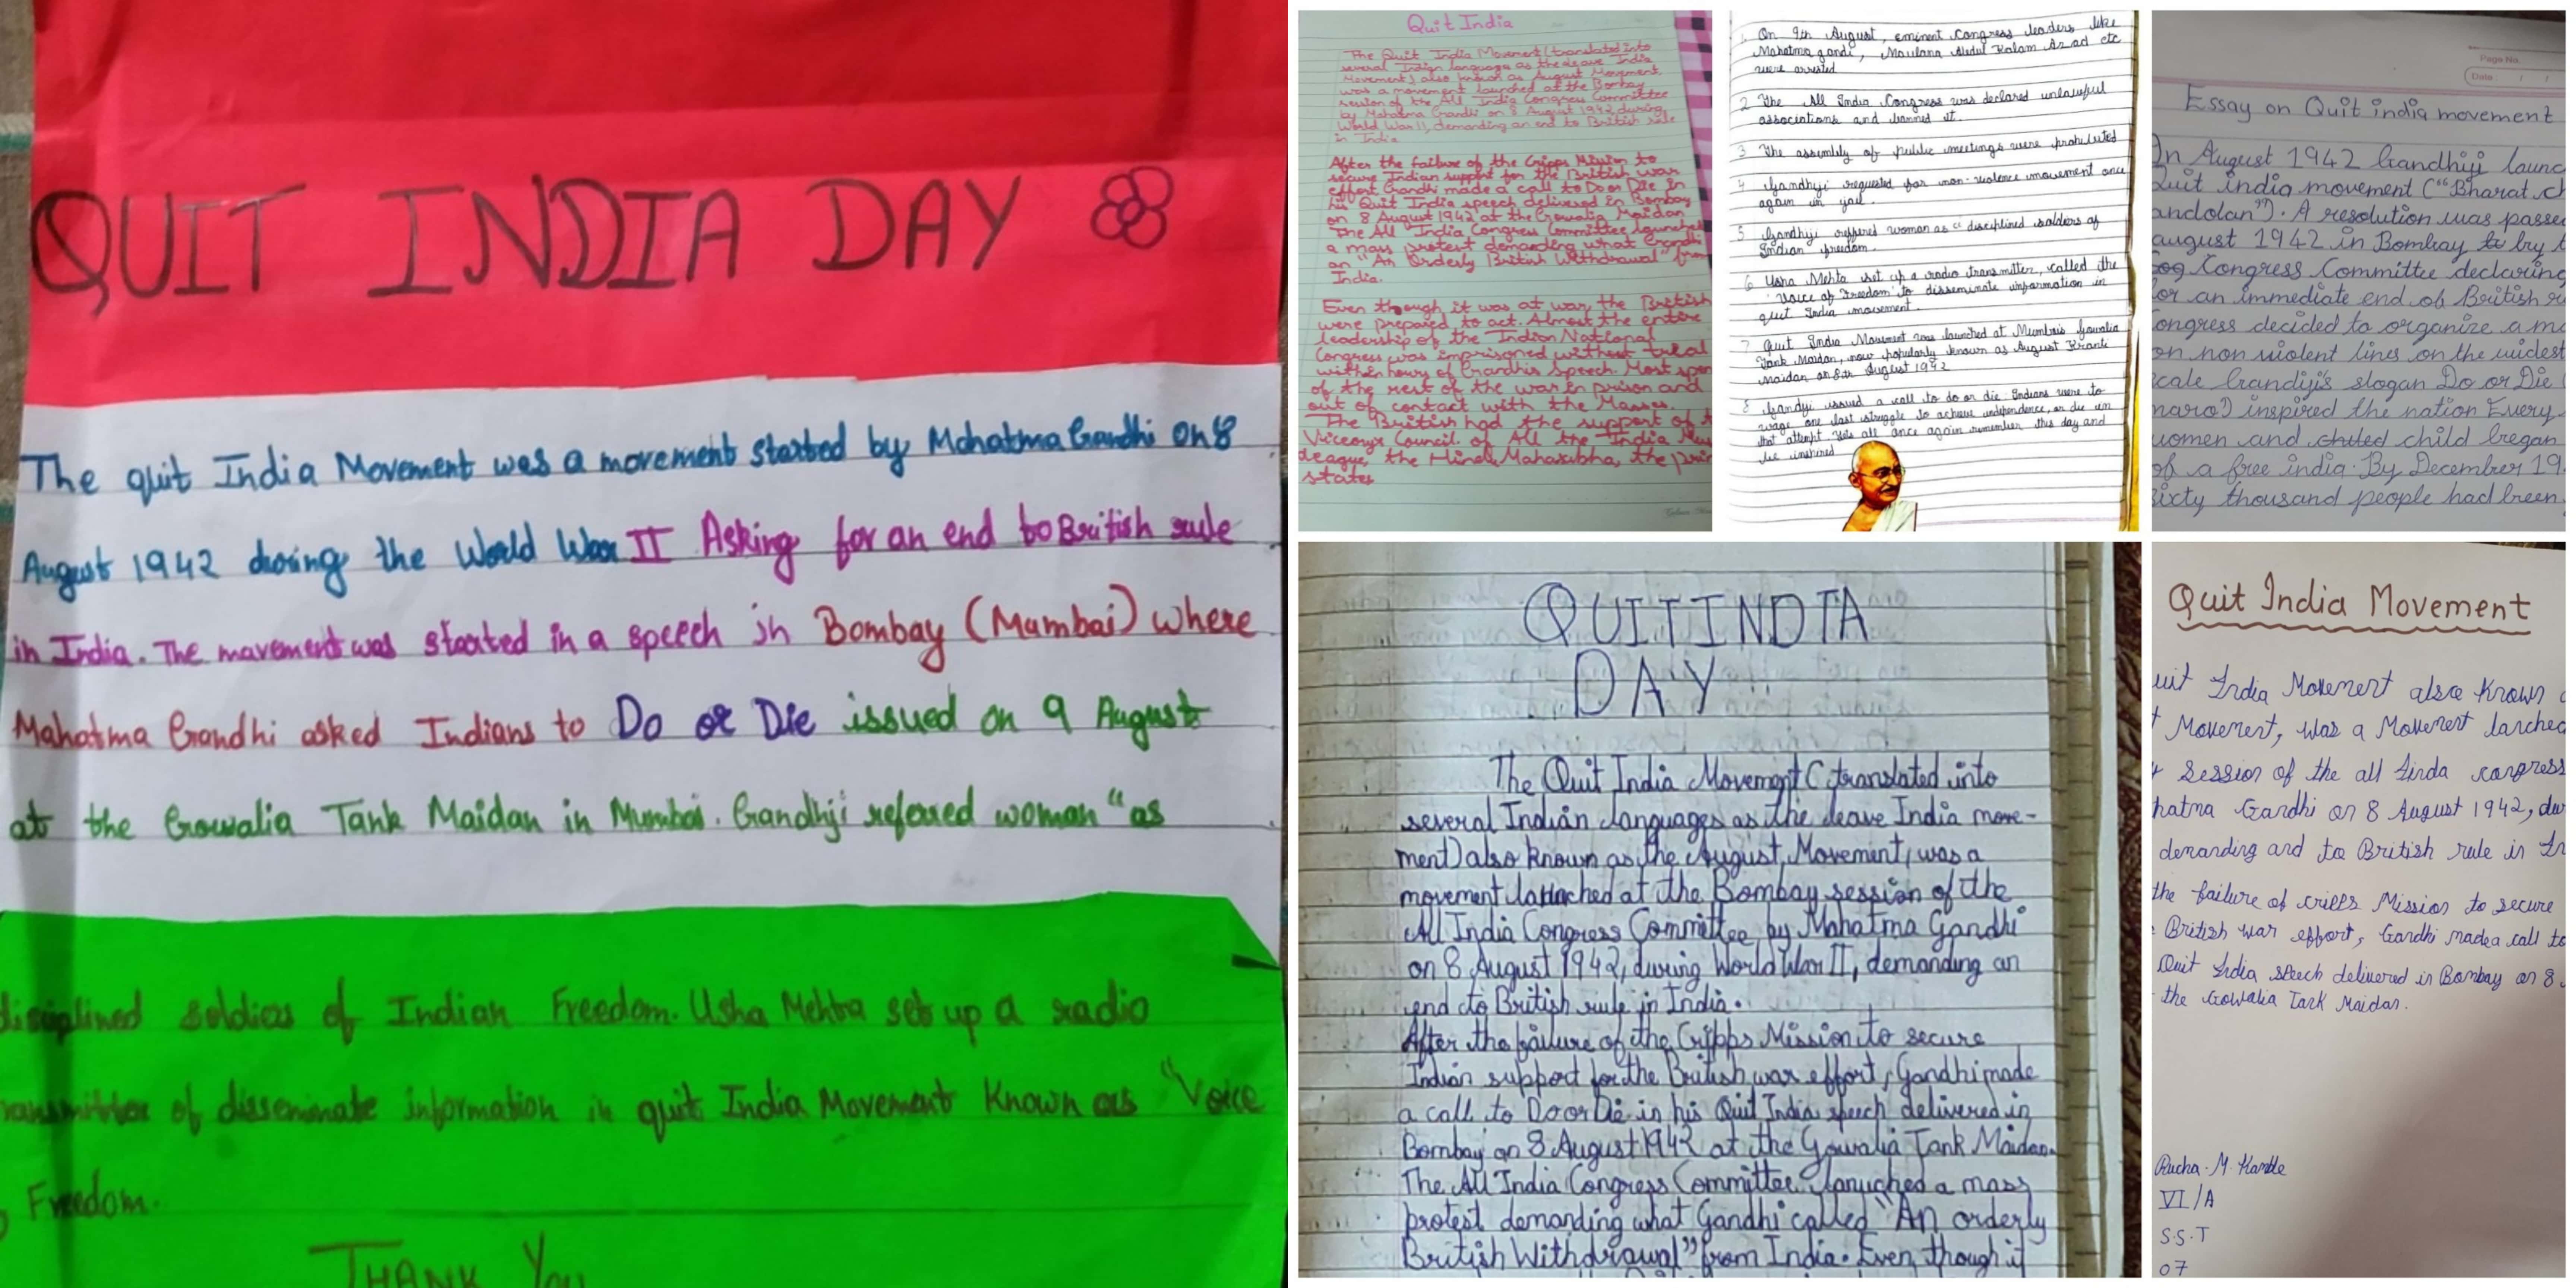 QUIT INDIA DAY
The quit India Movement was a movement started by Mahatma Gandhi on 8
August 1942 during the World War II Asking for an end to British rule
in India. The movement was started in a speech in Bombay (Mumbai) where
Mahatma Gandhi asked Indians to Do or Die issued on 9 August
at the Gowalia Tank Maidan in Mumbai. Gandhiji refered woman "as
disciplined soldiers of Indian Freedom. Usha Mehta set up a radio
ransmitter of disseminate information in quit India Movement Known as "Voice
Freedom.
THANK You
Quit India
The Quit India Movement (translated into
several Indian language as the leave India
Movement) also known as August Movement,
was a movement launched at the Bombay
session of the All India Congress Committee
by Mahatma Gandhi on 8 August 1942 during
World War II, demanding an end to British rule
in India
After the failure of the Cripps Mission to
secure Indian support for the British war
effort Gandhi made a call to Do or Die in
his Quit India speech delivered in Bombay
on 8 August 1942 at the Gowalia Maidan
The All India Congress Committee launched
a mass protest demanding what Gandhi
an "An Orderly British Withdrawal" from
India.
Even though it was at war, the British
were prepared to act. Almost the entire
leadership of the Indian National
Congress was imprisoned without trial
within hours of Gandhis Speech. Most spen
of the rest of the war in prison and
out of contact with the Masses.
The British had the support of
Viceroys Council of All the India Mus
league, the Hindu Mahasabha, the prin
states
1 On 9th August, eminent Congress leaders like
Mahatma gandi, Maulana Abdul Kalam Azad etc
were arrested
2 The All India Congress was declared unlawful
associations and banned it.
3 The assembly of public meetings were prohibited
4 Gandhiji requested for non-violence movement once
again in jail.
5 Gandhiji reffered woman as a disciplined soldiers of
Indian freedom.
6 Usha Mehta set up a radio transmitter, called the
'Voice of Freedom' to disseminate information in
quit India movement.
7 Quit India Movement was launched at Mumbais Gowalia
Tank Maidan, now popularly known as August Kranti
Maidan on 8th August 1942
8 Gandyi issued a call to do or die. Indians were to
wage one last struggle to achieve independence, or die in
that attempt. Lets all once again remember this day and
be inspired
Page No.
Date: / /
Essay on Quit india movement
In August 1942 Gandhiji launc
Quit india movement ("Bharat ch
andolan"). A resolution was passed
august 1942 in Bombay to by t
Cog Congress Committee declaring
for an immediate end of British ru
ongress decided to organize a ma
on non violent lines on the widest
scale Gandiji's slogan Do or Die (
maro) inspired the nation Every
women and child began
of a free india. By December 19
sixty thousand people had been
QUIT INDIA
DAY
The Quit India Movement (translated into
several Indian languages as the leave India move-
ment) also known as the August Movement, was a
movement launched at the Bombay session of the
All India Congress Committee by Mahatma Gandhi
on 8 August 1942, during World War II, demanding an
end to British rule in India.
After the failure of the Cripps Mission to secure
Indian support for the British war effort, Gandhi made
a call to Do or Die in his Quit India speech delivered in
Bombay on 8 August 1942 at the Gowalia Tank Maidan.
The All India Congress Committee lanuched a mass
protest demanding what Gandhi called "An orderly
British Withdrawal" from India. Even though it
Quit India Movement
uit India Movement also Known
t Movement, was a Movement lanched
y Session of the all Iinda congress
hatma Gandhi on 8 August 1942, du
demanding and to British rule in In
the failure of cripps Mission to secure
British war effort, Gandhi made a call to
Quit India speech delivered in Bombay on 8
the Gowalia Tank Maidan.
Rucha. M. Kamble
VI/A
S.S.T
07